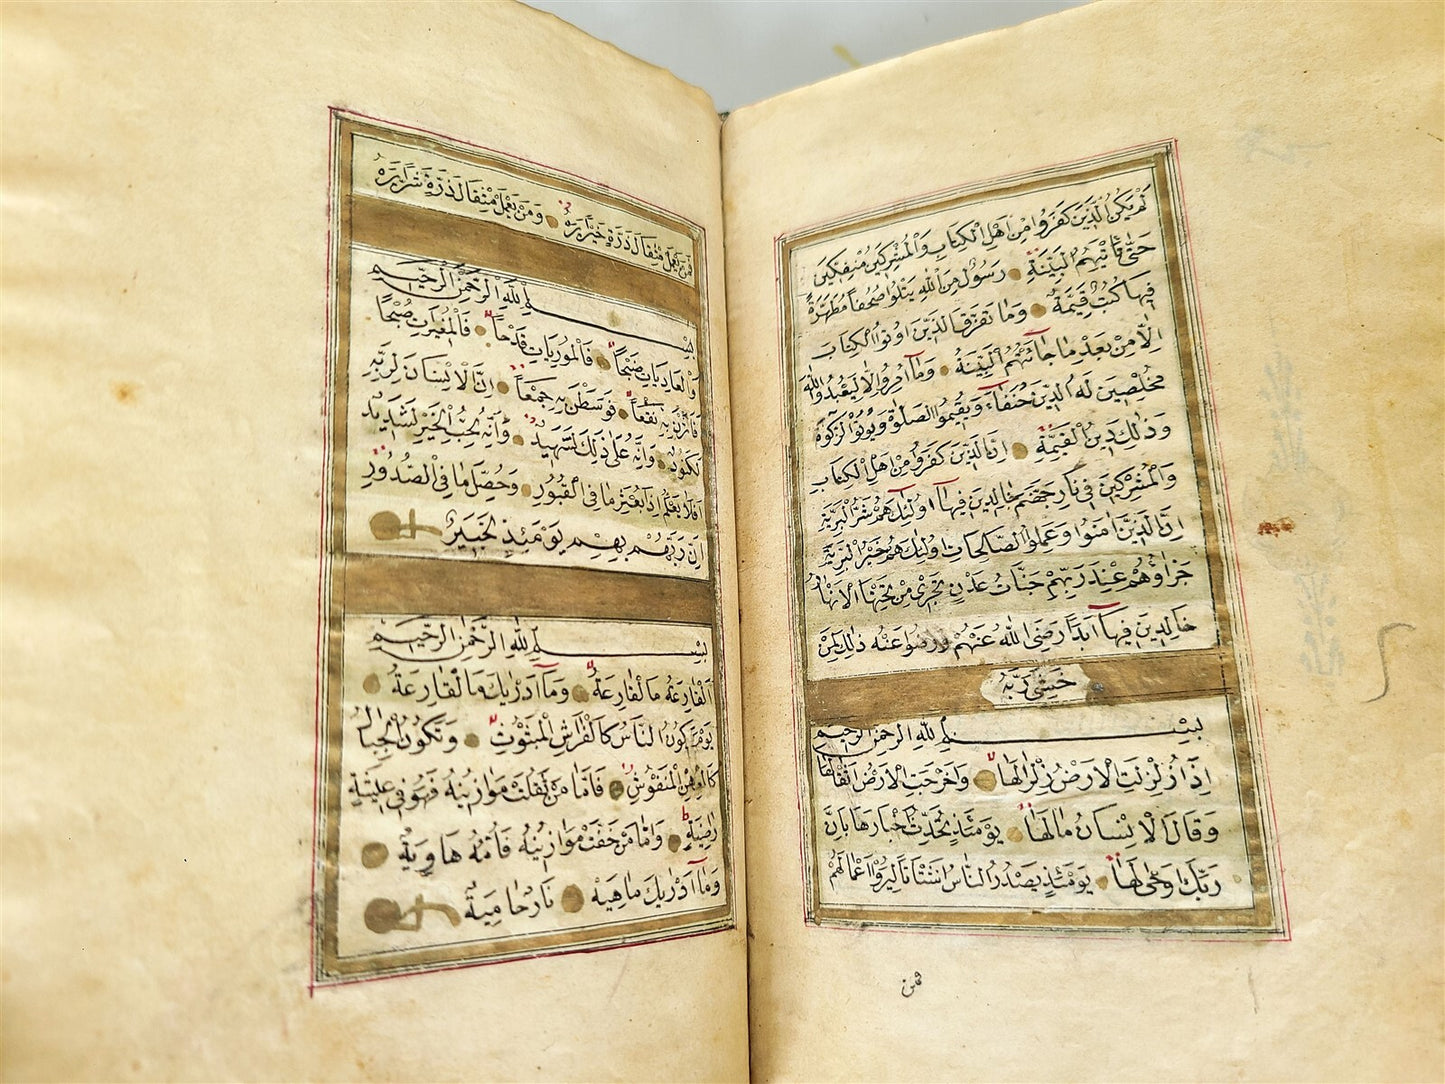 لَمْ يَكُنِ الَّذِينَ كَفَرُوا مِنْ اَهْلِ الْكِتَابِ وَالْمُشْرِكِينَ مُنْفَكِّينَ
حَتّٰى تَأْتِيَهُمُ الْبَيِّنَةُ رَسُولٌ مِنَ اللّٰهِ يَتْلُوا صُحُفاً مُطَهَّرَةً
فِيهَا كُتُبٌ قَيِّمَةٌ وَمَا تَفَرَّقَ الَّذِينَ اُوتُوا الْكِتَابَ
اِلَّا مِنْ بَعْدِ مَا جَاءَتْهُمُ الْبَيِّنَةُ وَمَا اُمِرُوا اِلَّا لِيَعْبُدُوا اللّٰهَ
مُخْلِصِينَ لَهُ الدِّينَ حُنَفَاءَ وَيُقِيمُوا الصَّلٰوةَ وَيُؤْتُوا الزَّكٰوةَ
وَذٰلِكَ دِينُ الْقَيِّمَةِ اِنَّ الَّذِينَ كَفَرُوا مِنْ اَهْلِ الْكِتَابِ
وَالْمُشْرِكِينَ فِي نَارِ جَهَنَّمَ خَالِدِينَ فِيهَا اُولٰئِكَ هُمْ شَرُّ الْبَرِيَّةِ
اِنَّ الَّذِينَ اٰمَنُوا وَعَمِلُوا الصَّالِحَاتِ اُولٰئِكَ هُمْ خَيْرُ الْبَرِيَّةِ
جَزَاؤُهُمْ عِنْدَ رَبِّهِمْ جَنَّاتُ عَدْنٍ تَجْرِي مِنْ تَحْتِهَا الْاَنْهَارُ
خَالِدِينَ فِيهَا اَبَداً رَضِيَ اللّٰهُ عَنْهُمْ وَرَضُوا عَنْهُ ذٰلِكَ لِمَنْ
خَشِيَ رَبَّهُ
بِسْمِ اللّٰهِ الرَّحْمٰنِ الرَّحِيمِ
اِذَا زُلْزِلَتِ الْاَرْضُ زِلْزَالَهَا وَاَخْرَجَتِ الْاَرْضُ اَثْقَالَهَا
وَقَالَ الْاِنْسَانُ مَا لَهَا يَوْمَئِذٍ تُحَدِّثُ اَخْبَارَهَا بِاَنَّ
رَبَّكَ اَوْحٰى لَهَا يَوْمَئِذٍ يَصْدُرُ النَّاسُ اَشْتَاتاً لِيُرَوْا اَعْمَالَهُمْ
فمن
فَمَنْ يَعْمَلْ مِثْقَالَ ذَرَّةٍ خَيْراً يَرَهُ وَمَنْ يَعْمَلْ مِثْقَالَ ذَرَّةٍ شَرّاً يَرَهُ
بِسْمِ اللّٰهِ الرَّحْمٰنِ الرَّحِيمِ
وَالْعَادِيَاتِ ضَبْحاً فَالْمُورِيَاتِ قَدْحاً فَالْمُغِيرَاتِ صُبْحاً
فَاَثَرْنَ بِهِ نَقْعاً فَوَسَطْنَ بِهِ جَمْعاً اِنَّ الْاِنْسَانَ لِرَبِّهِ
لَكَنُودٌ وَاِنَّهُ عَلٰى ذٰلِكَ لَشَهِيدٌ وَاِنَّهُ لِحُبِّ الْخَيْرِ لَشَدِيدٌ
اَفَلَا يَعْلَمُ اِذَا بُعْثِرَ مَا فِي الْقُبُورِ وَحُصِّلَ مَا فِي الصُّدُورِ
اِنَّ رَبَّهُمْ بِهِمْ يَوْمَئِذٍ لَخَبِيرٌ
بِسْمِ اللّٰهِ الرَّحْمٰنِ الرَّحِيمِ
اَلْقَارِعَةُ مَا الْقَارِعَةُ وَمَا اَدْرٰيكَ مَا الْقَارِعَةُ
يَوْمَ يَكُونُ النَّاسُ كَالْفَرَاشِ الْمَبْثُوثِ وَتَكُونُ الْجِبَالُ
كَالْعِهْنِ الْمَنْفُوشِ فَاَمَّا مَنْ ثَقُلَتْ مَوَازِينُهُ فَهُوَ فِي عِيشَةٍ
رَاضِيَةٍ وَاَمَّا مَنْ خَفَّتْ مَوَازِينُهُ فَاُمُّهُ هَاوِيَةٌ
وَمَا اَدْرٰيكَ مَا هِيَهْ نَارٌ حَامِيَةٌ